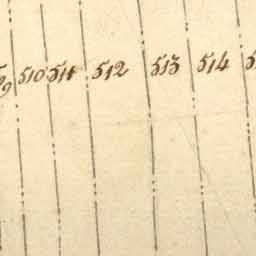 510 511 512 513 514